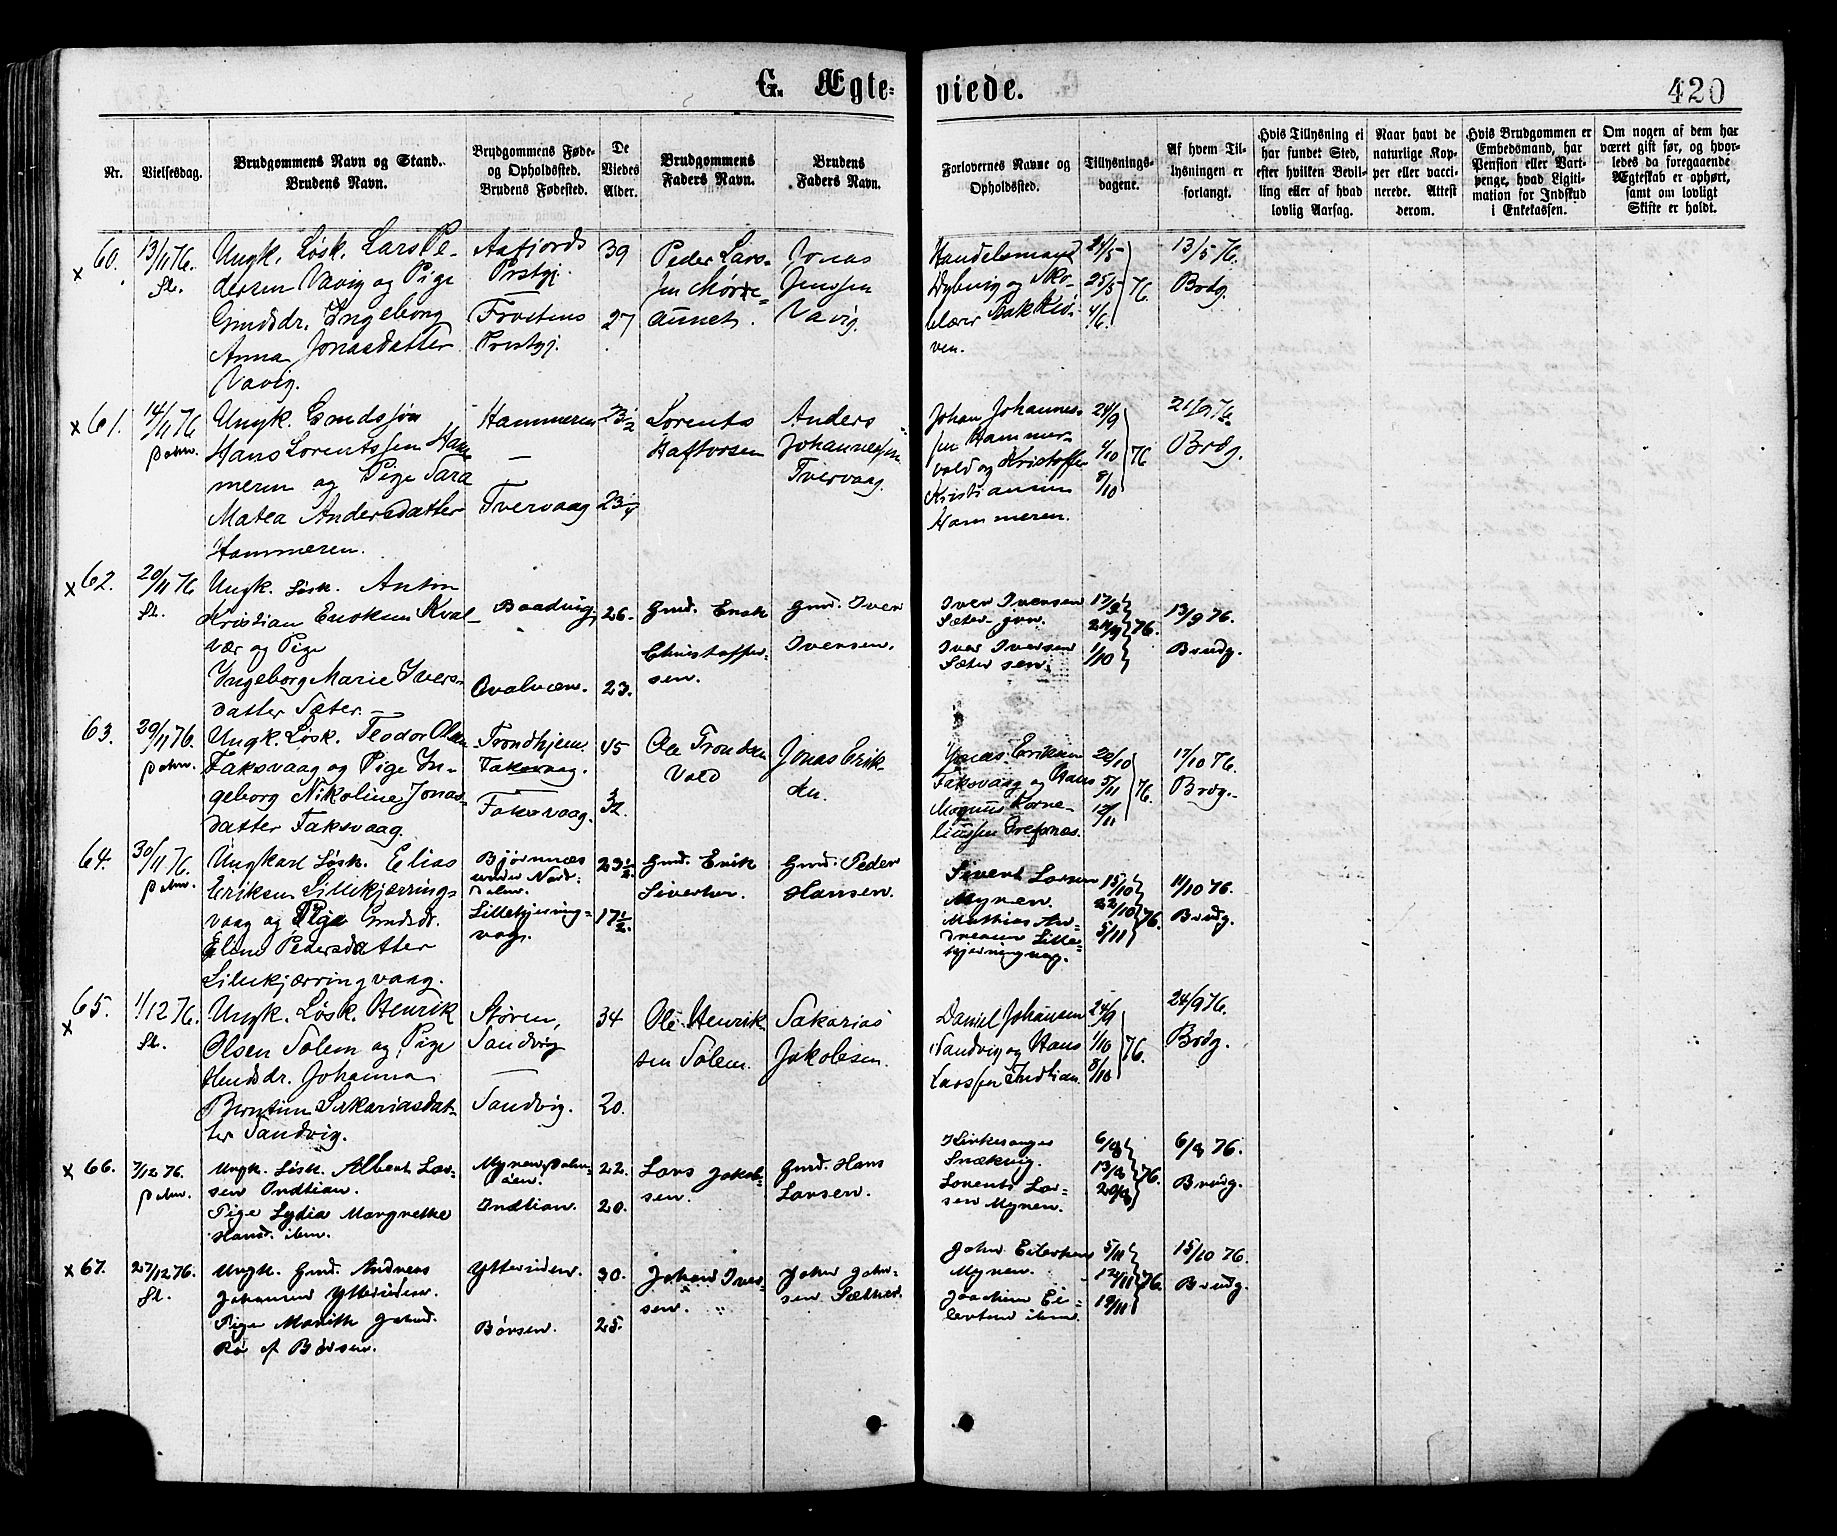 G. Ægte-
viede.
420
Nr.
Vielsesdag.
Brudgommens Navn og Stand.
Brudens Navn.
Brudgommens Føde-
og Opholdssted.
Brudens Fødested.
De
Viedes
Alder.
Brudgommens
Faders Navn.
Brudens
Faders Navn.
Forlovernes Navne og
Opholdssted.
Tillysnings-
dagene.
Af hvem Til-
lysningen er
forlangt.
Hvis Tillysning ei
har fundet Sted,
efter hvilken Bevil-
ling eller af hvad
lovlig Aarsag.
Naar havt de
naturlige Kop-
per eller vacci-
nerede. Attest
derom.
Hvis Brudgommen er
Embedsmand, har
Pension eller Vart-
penge, hvad Ligiti-
mation for Indskud
i Enkekassen.
Om nogen af dem har
været gift før, og hvor-
ledes da foregaaende
Ægteskab er ophørt,
samt om lovligt
Skifte er holdt.
x 60.
13/11 76.
Sl.
Ungk. Løsk. Lars Pe-
dersen Vavig og Pige
Gmdsdr. Ingeborg
Anna Jonasdatter
Vavig.
Aafjords
Prstgj.
Frostens
Prestgj.
39
27
Peder Lars-
sen Mørre-
aunet.
Jonas
Jenssen
Vavig.
Handelsmand
Dybvig og Sko-
ven.
24/5
25/5
4/6
76.
13/5 76.
Brdg.
x 61.
14/11 76
Ungk. Gmdssøn
Hans Lorentssen Ham-
meren og Pige Sara
Matea Andersdatter
Hammeren.
Hammeren
Tvervaag
23 1/2
23 1/4
Lorents
Haftorsen
Anders
Johannessen
Tvervaag.
Johan Johannes-
sen Hammer-
vold og Kristoffer
Kristiansen
Hammeren.
24/9
1/10
8/10
76
21/9 76.
Brdg.
x 62.
20/11 76
Sl.
Ungk. Løsk. Anton
Kristian Enoksen Kval-
vær og Pige
Ingeborg Marie Ivers-
datter Sæter.
Baadvig,
Qvalvær.
26.
23.
Gmd. Enok
Christoffer-
sen.
Gmd. Iver
Iversen.
Iver Iversen
Sæter gmr.
Iver Iversen
Sæter sen.
17/9
24/9
1/10
76.
13/9 76.
Brudg.
63.
29/11 76.
Ungk. Løsk. Teodor Olsen
Faksvaag og Pige In-
geborg Nikoline Jonas-
datter Faksvaag.
Trondhjem.
Faksvaag.
Faksvaag.
45
32.
Ole Tronsen
Vold
Jonas Erik-
sen.
Jonas Eriksen
Faksvaag og Hans
Magnus Korne-
liussen Grefsnæs.
22/10
5/11
12/11
76.
17/10 76.
Brdg.
64.
30/11 76.
Ungkarl Løsk. Elias
Eriksen Lillekjærring-
vaag og Pige Gmdsdr.
Elen Pedersdatter
Lillekjærringvaag.
Bjørnnæs
under Nord-
dalen.
Lillekjerring-
vaag.
23 1/2.
17 1/2.
Gmd. Erik
Sivertsen.
Gmd. Peder
Hansen.
Sivert Larsen
Mynen.
Mathias An-
dreasen Lille-
kjerringvag.
15/10
22/10
5/11
76.
11/10 76.
Brudg.
x 65.
1/12 76.
Sl.
Ungk. Løsk. Henrik
Olsen Solem og Pige
Hmdsdr. Johanna
Berntine Sakariasdat-
ter Sandvig.
Støren,
Sandvig
Sandvig.
34
20.
Ole Henrik-
sen Solem.
Sakarias
Jakobsen.
Daniel Johansen
Sandvig og Hans
Larssen Indtian.
24/9
1/10
8/10
76.
24/9 76.
Brdg.
x 66.
7/12 76.
Ungk. Løsk. Albert Lar-
sen Indtian.
Pige Lydia Margrethe
Hansd. ibm.
Mynen,
Indtian.
22.
20.
Lars Jakob-
sen.
Gmd. Hans
Larsen.
Kirkesanger
Snækvig.
Lorents Lar-
sen Mynen.
6/8
13/8
20/8
76.
6/8 76.
Brudg.
x 67.
27/12 76.
Sl.
Ungk. Gmd. Andreas
Johansen Ytterøien.
Pige Marith Johnd.
Rø af Børsen.
Ytterøien.
Børsen.
30.
25.
Johan Iver-
sen.
John John-
sen Sæther.
John Eilertsen
Mynen.
Joachim Ei-
lertsen ibm.
5/11
12/11
19/11
76.
15/10 76.
Brudg.